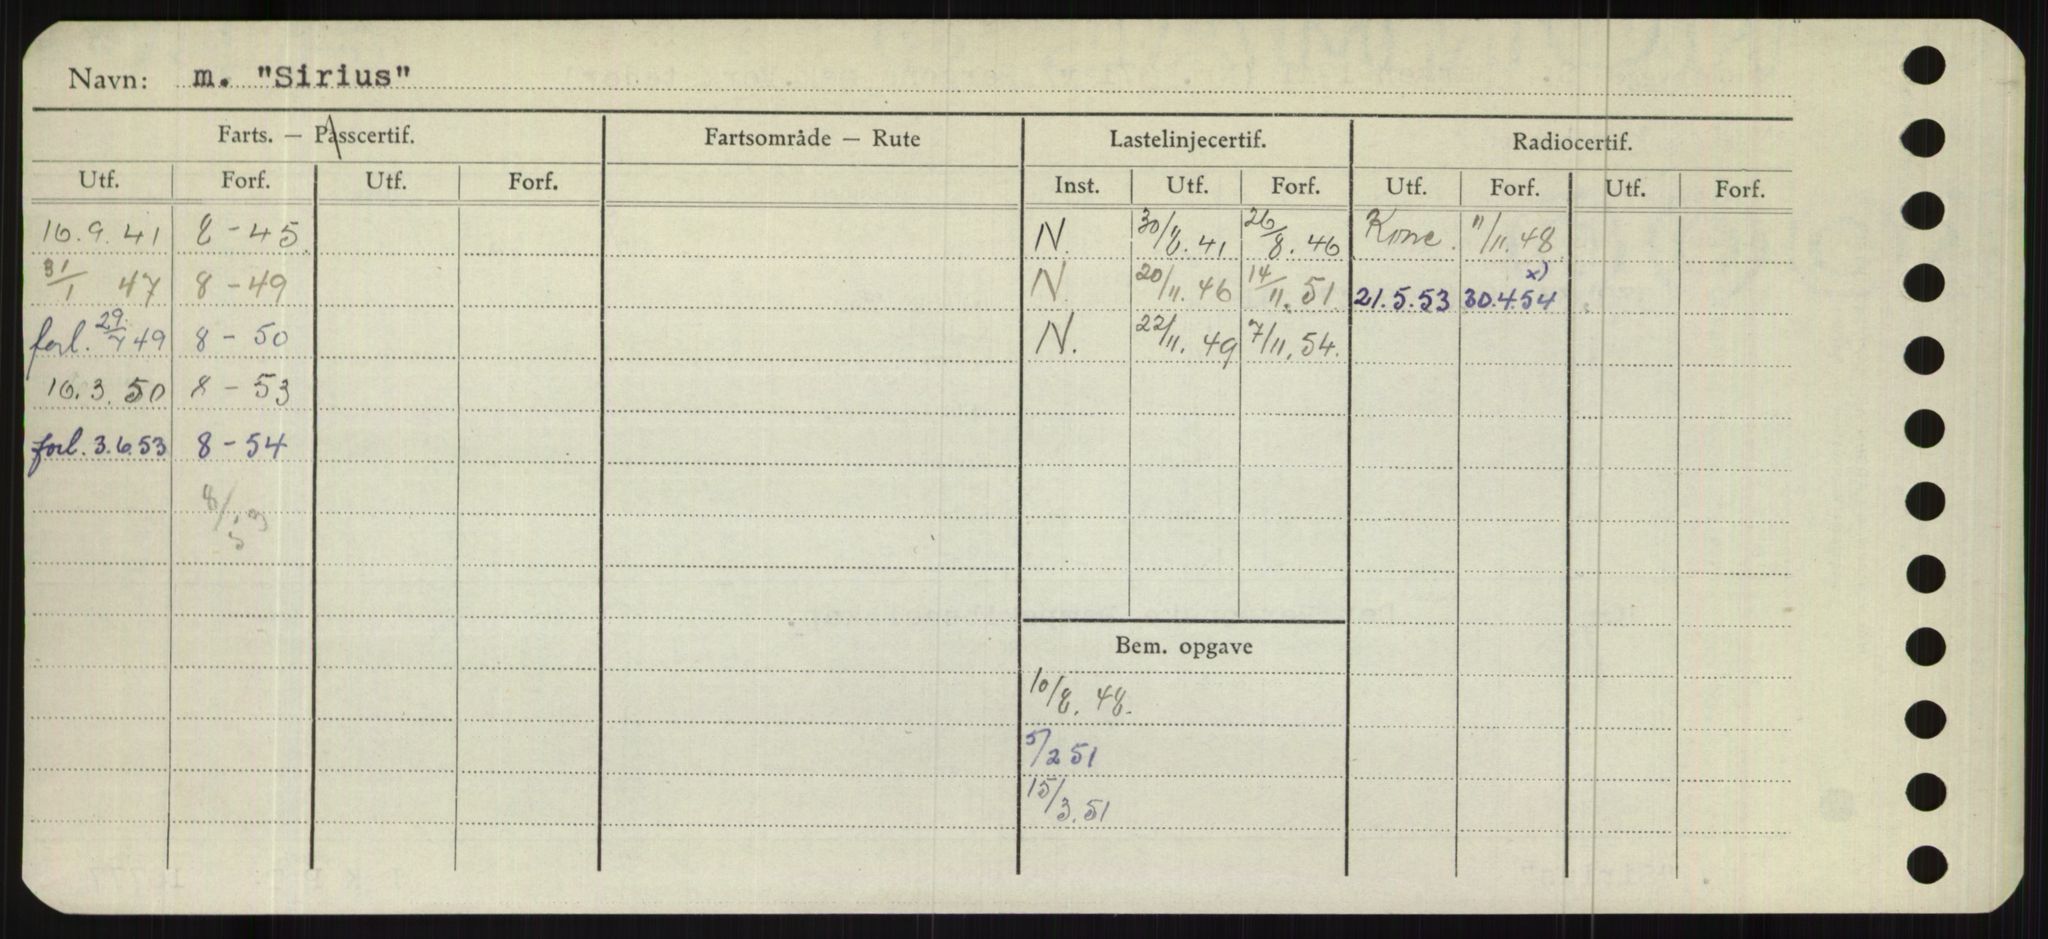 Navn: m. "Sirius"
Farts. — Passcertif. Fartsområde — Rute Lastelinjecertif. Radiocertif.
Utf. Forf. Utf. Forf. Inst. Utf. Forf. Utf. Forf. Utf. Forf.
16.9.41 8-45 N. 30/8.41 26/8.46 Konc. 11/11.48
31/1 47 8-49 N. 20/11.46 14/11.51 21.5.53 30.4.54 x)
forl. 29/7 49 8-50 N. 22/11.49 7/11.54.
16.3.50 8-53
forl. 3.6.53 8-54
8/53
Bem. opgave
10/8.48.
5/2 51
15/3.51